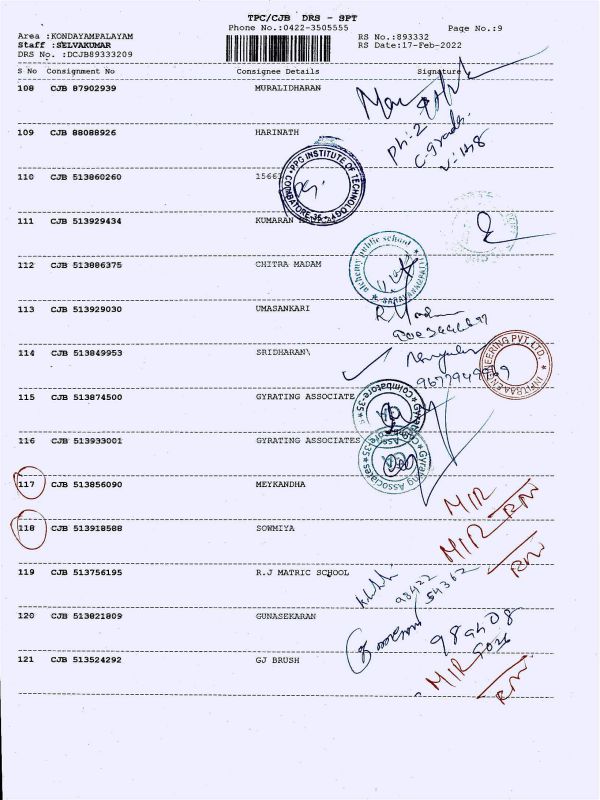 TPC/CJB DRS - SPT
Phone No.:0422-3505555 Page No.:9
Area :KONDAYAMPALAYAM RS No.:893332
Staff :SELVAKUMAR RS Date:17-Feb-2022
DRS No. :DCJB89333209
S No Consignment No Consignee Details Signature
108 CJB 87902939 MURALIDHARAN
109 CJB 88088926 HARINATH
Ph:2
C-grade
V:148
110 CJB 513860260 1566
PPG INSTITUTE OF TECHNOLOGY COIMBATORE-35
111 CJB 513929434 KUMARAN
112 CJB 513886375 CHITRA MADAM
alchemy public school
113 CJB 513929030 UMASANKARI
114 CJB 513849953 SRIDHARAN\
ENGINEERING PVT.LTD.
115 CJB 513874500 GYRATING ASSOCIATE
Gyrating Associates Coimbatore-35
116 CJB 513933001 GYRATING ASSOCIATES
Gyrating Associates Coimbatore-35
117 CJB 513856090 MEYKANDHA MIR
118 CJB 513918588 SOWMIYA MIR
119 CJB 513756195 R.J MATRIC SCHOOL
98422
54362
120 CJB 513821809 GUNASEKARAN
989408
5026
121 CJB 513524292 GJ BRUSH MIR